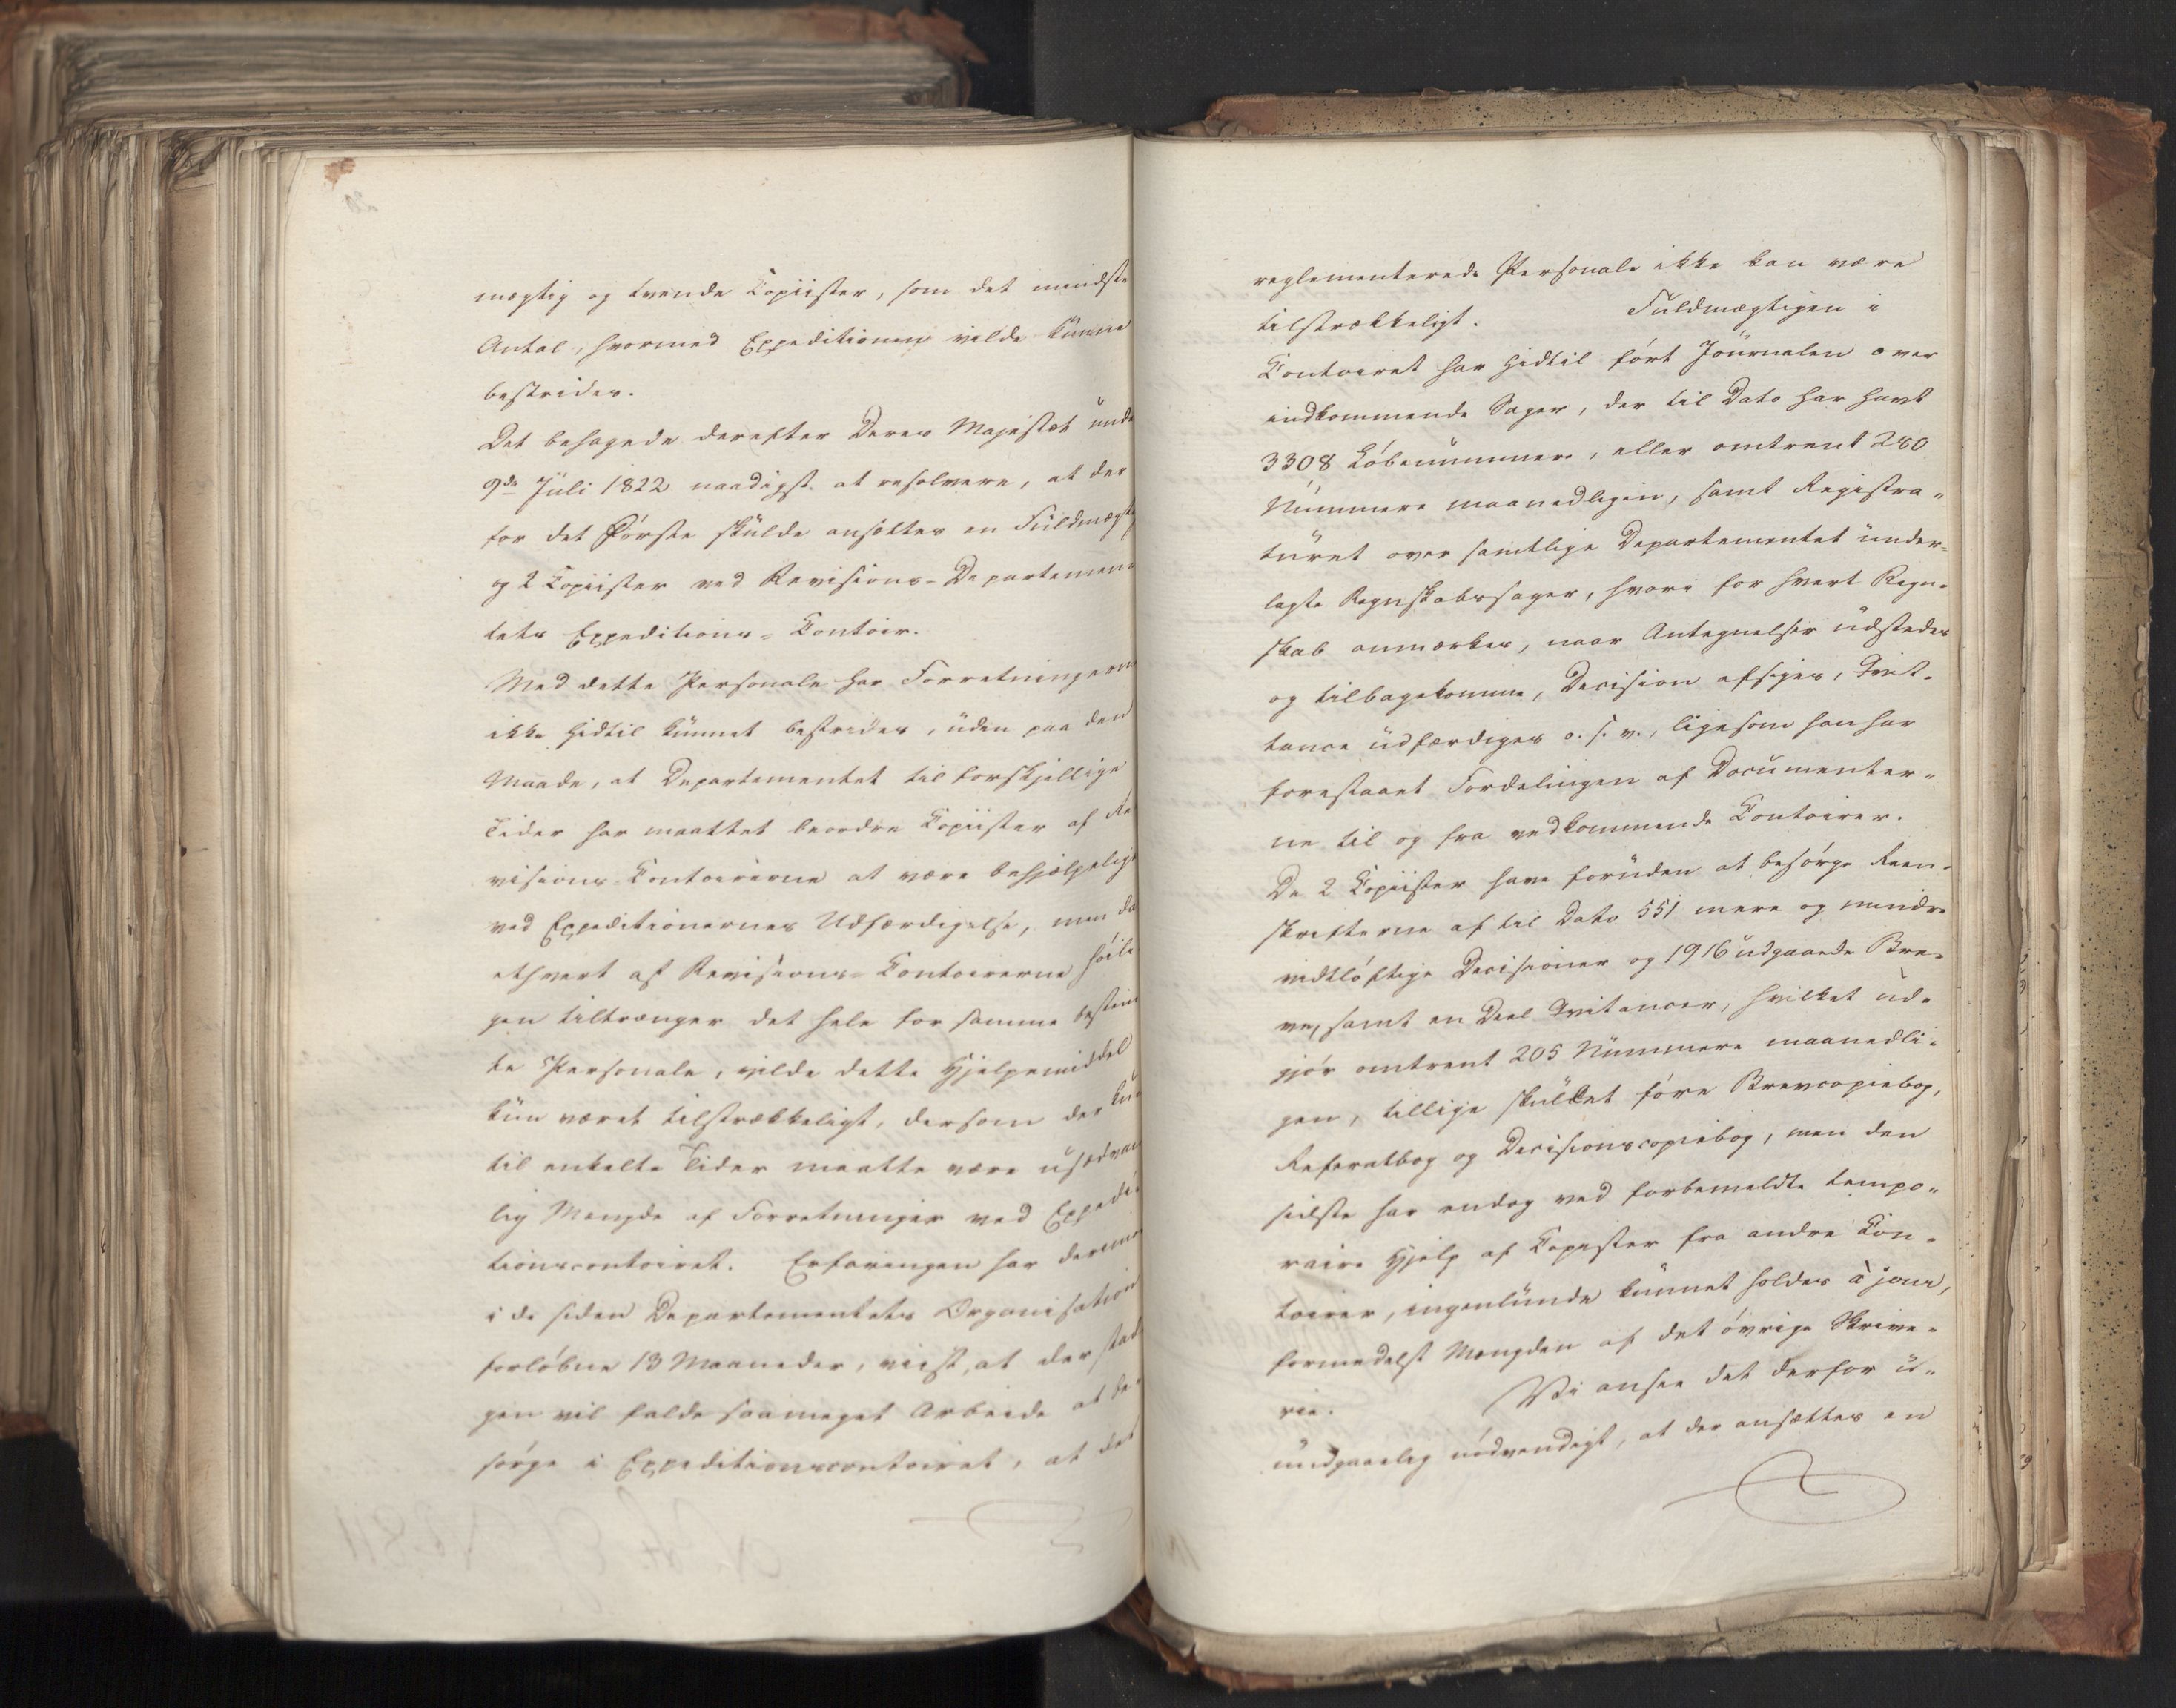 mægtig og tvende Copiister, som det mindste
Antal, hvormed Expeditionen vilde kunne
bestrides.
Det behagede derefter Deres Majestæt unde
9de Juli 1822 naadigst at resolvere, at der
for det Første skulde ansættes en Fuldmægt
og 2 Copiister ved Revisions-Departemen
tets Expeditions-Contoir.
Med dette Personale har Forretningerne
ikke hidtil kunnet bestrides, uden paa den
Maade, at Departementet til forskjellige
Tider har maattet beordre Copiister af Re
visions-Contoirerne at være behjælpelige
ved Expeditionernes Udfærdigelse, men da
ethvert af Revisions-Contoirerne høili
gen tiltrænger det hele for samme bestem
te Personale, vilde dette Hjelpemiddel
kun været tilstrækkeligt, dersom der kun
til enkelte Tider maatte være usædvan
lig Mængde af Forretninger ved Expedi-
tionscontoiret. Erfaringen har derimo
i de siden Departementets Organisation
forløbne 13 Maaneder, viist, at der stad
gen vil falde saameget Arbeide at be-
sørge i Expeditionscontoiret, at det
reglementerede Personale ikke kan være
tilstrækkeligt. Fuldmægtigen i
Contoiret har hidtil ført Journalen over
indkommende Sager, der til Dato har havt
3308 Løbenummere, eller omtrent 280
Nummere maanedligen, samt Registra-
turet over samtlige Departementet under-
lagte Regnskabssager, hvori for hvert Regn-
skab anmærkes, naar Antegnelser udstedes
og tilbagekomme, Decision afsiges, Qvit-
tance udfærdiges o. s. v., ligesom han har
forestaaet Fordelingen af Documenter-
ne til og fra vedkommende Contoirer.
De 2 Copiister have foruden at besørge Reen-
skrifterne af til Dato 551 mere og mindre
vidtløftige Decisioner og 1916 udgaaede Bre-
ve, samt en Deel Qvitancer, hvilket ud-
gjør omtrent 205 Nummere maanedli-
gen, tillige skullet føre Brevcopiebog,
Referatbog og Decisionscopiebog, men den
sidste har endog ved forbemeldte tempo-
raire Hjelp af Copister fra andre Con-
toirer, ingenlunde kunnet holdes à jour,
formedelst Mængden af det øvrige Skrive-
rie. Vi ansee det derfor u-
undgaaelig nødvendigt, at der ansættes en